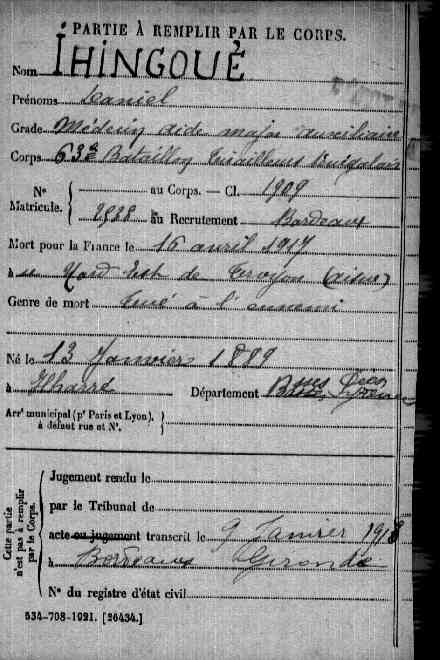 PARTIE À REMPLIR PAR LE CORPS.
Nom IHINGOUE
Prénoms Daniel
Grade Médecin aide major auxiliaire
Corps 63e Bataillon Tirailleurs Sénégalais
N° Matricule. { au Corps. — Cl. 1909
2528 au Recrutement Bordeaux
Mort pour la France le 16 avril 1917
à au Nord Est de Troyon (Aisne)
Genre de mort tué à l'ennemi
Né le 13 Janvier 1889
à Ilharre Département Basses Pyrénées
Arrt municipal (pr Paris et Lyon), à défaut rue et N°. }
Cette partie n'est pas à remplir par le Corps.
Jugement rendu le
par le Tribunal de
acte ou jugement transcrit le 9 Janvier 1918
à Bordeaux Gironde
N° du registre d'état civil
534-708-1921. [26434.]